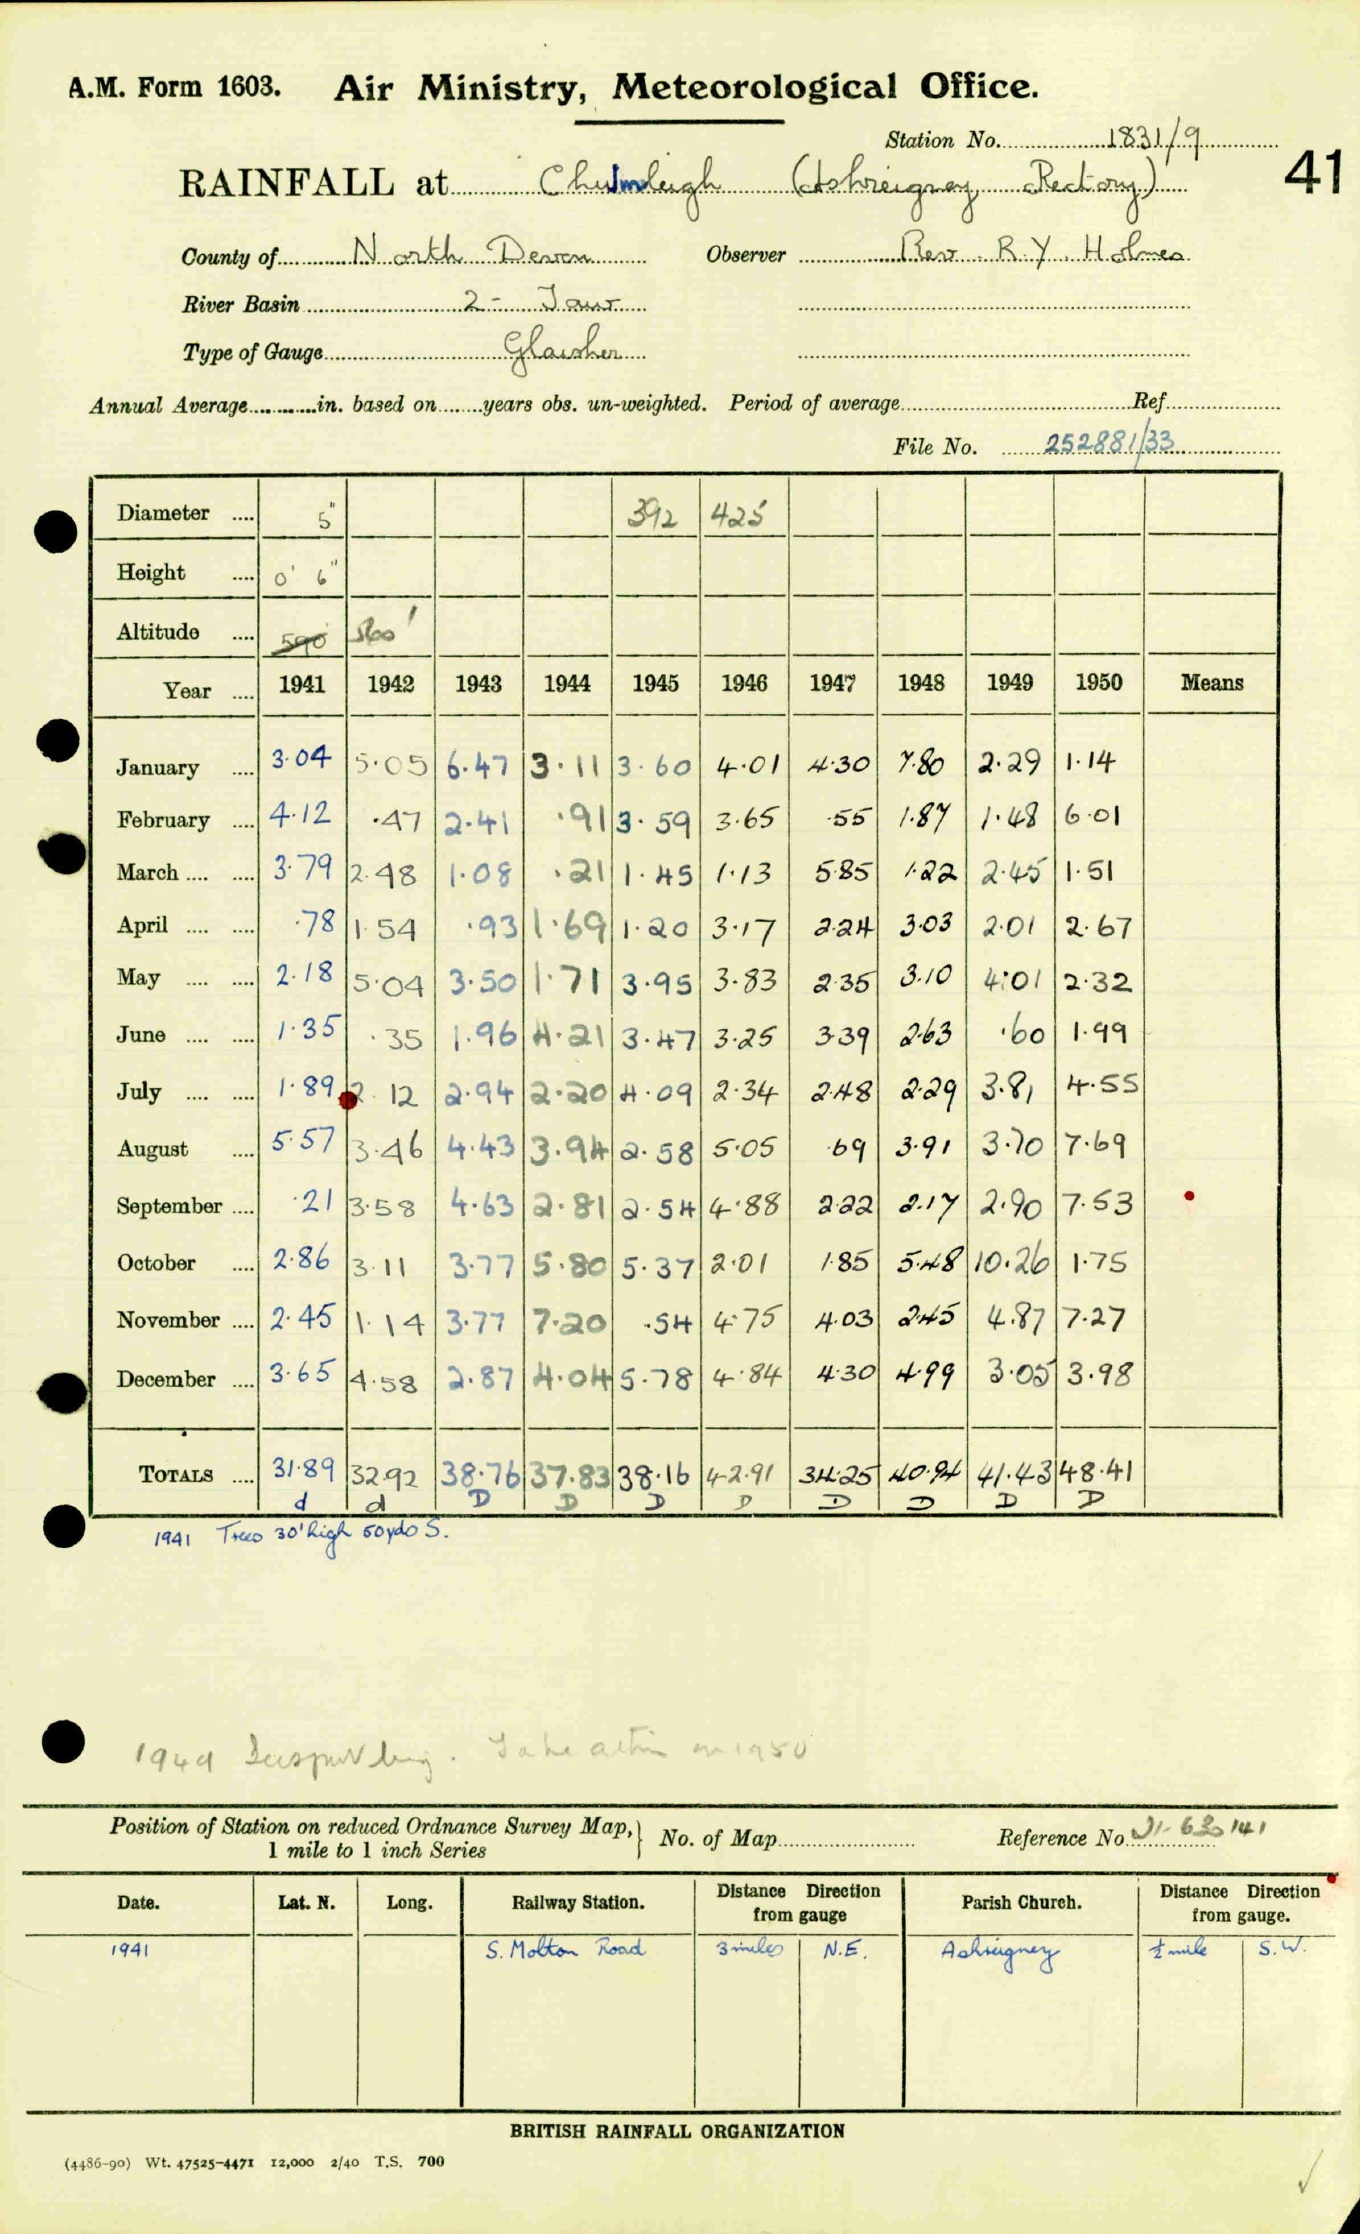 A.M. Form 1603. Air Ministry, Meteorological Office.
Station No. 1831/9
41
RAINFALL at Chulmleigh (Ashreigney Rectory)
County of North Devon Observer Rev. R. Y. Holmes
River Basin 2 - Taw
Type of Gauge Glaisher
Annual Average in. based on years obs. un-weighted. Period of average Ref
File No. 252881/33
Diameter .... 5" 392 425
Height .... 0' 6"
Altitude .... 590 500'
Year .... 1941 1942 1943 1944 1945 1946 1947 1948 1949 1950 Means
January .... 3.04 5.05 6.47 3.11 3.60 4.01 4.30 7.80 2.29 1.14
February .... 4.12 .47 2.41 .91 3.59 3.65 .55 1.87 1.48 6.01
March .... .... 3.79 2.48 1.08 .21 1.45 1.13 5.85 1.22 2.45 1.51
April .... .... .78 1.54 .93 1.69 1.20 3.17 2.24 3.03 2.01 2.67
May .... .... 2.18 5.04 3.50 1.71 3.95 3.83 2.35 3.10 4.01 2.32
June .... .... 1.35 .35 1.96 4.21 3.47 3.25 3.39 2.63 .60 1.99
July .... .... 1.89 2.12 2.94 2.20 4.09 2.34 2.48 2.29 3.81 4.55
August .... 5.57 3.46 4.43 3.94 2.58 5.05 .69 3.91 3.70 7.69
September .... .21 3.58 4.63 2.81 2.54 4.88 2.22 2.17 2.90 7.53
October .... 2.86 3.11 3.77 5.80 5.37 2.01 1.85 5.48 10.26 1.75
November .... 2.45 1.14 3.77 7.20 .54 4.75 4.03 2.45 4.87 7.27
December .... 3.65 4.58 2.87 4.04 5.78 4.84 4.30 4.99 3.05 3.98
TOTALS .... 31.89 32.92 38.76 37.83 38.16 42.91 34.25 40.94 41.43 48.41
d d D D D D D D D D
1941 Trees 30' high 50yds S.
1949 Take action on 1950
Position of Station on reduced Ordnance Survey Map,
1 mile to 1 inch Series
No. of Map Reference No 630 141
Date. Lat. N. Long. Railway Station. Distance Direction from gauge Parish Church. Distance Direction from gauge.
1941 S. Molton Road 3 miles N.E. Ashreigney ½ mile S.W.
BRITISH RAINFALL ORGANIZATION
(4486-90) Wt. 47525-4471 12,000 2/40 T.S. 700